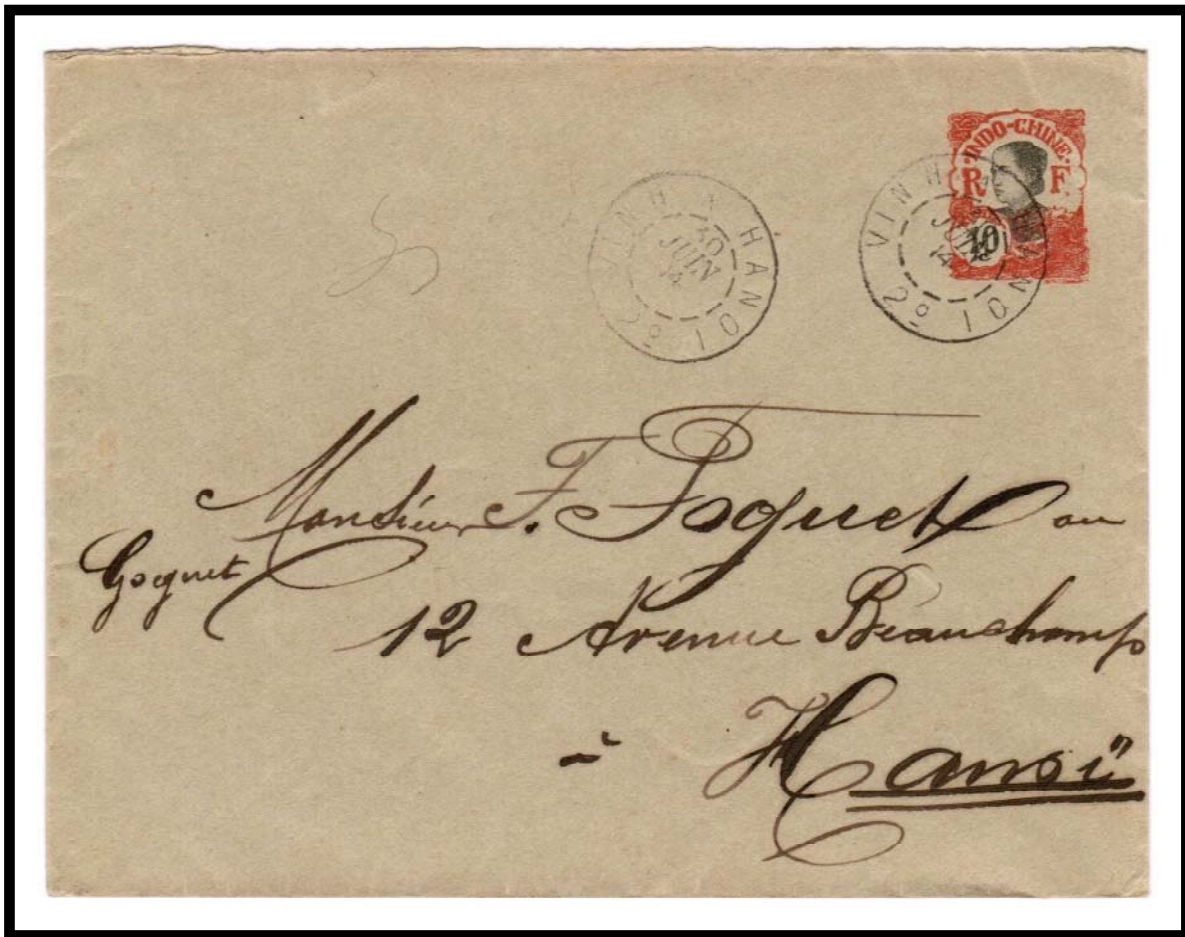 INDO-CHINE
R F
10
VINH A HANOI 2º
30
JUIN
14
VINH A HANOI 2º
JUIN
14
Monsieur F. Foquet ou
Gocquet
12 Avenue Beauchamp
à Hanoï